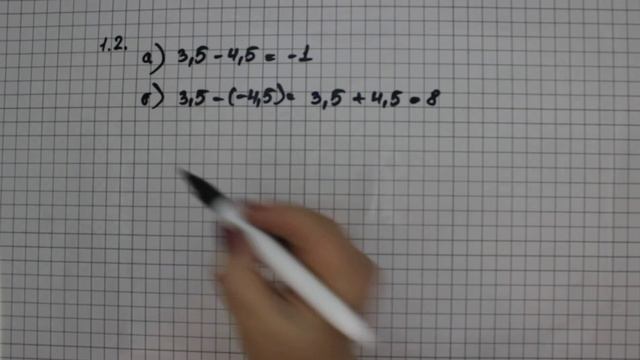 1.2.
а) 3,5 - 4,5 = -1
б) 3,5 - (-4,5) = 3,5 + 4,5 = 8